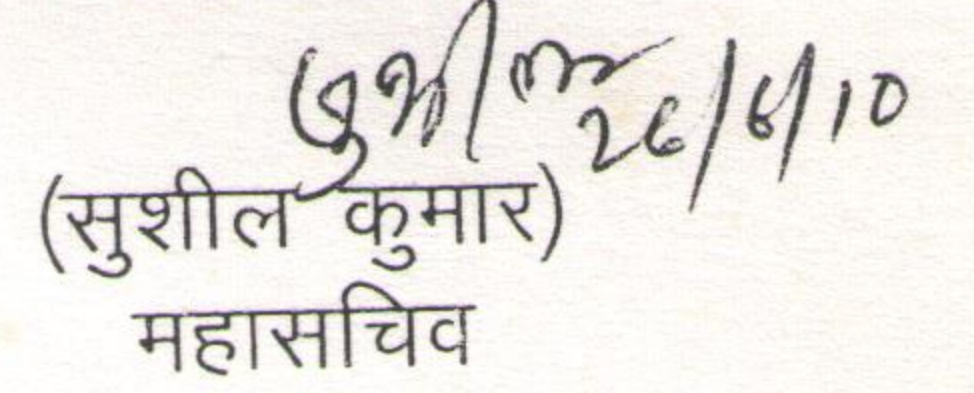 सुशील 26/6/10
(सुशील कुमार)
महासचिव